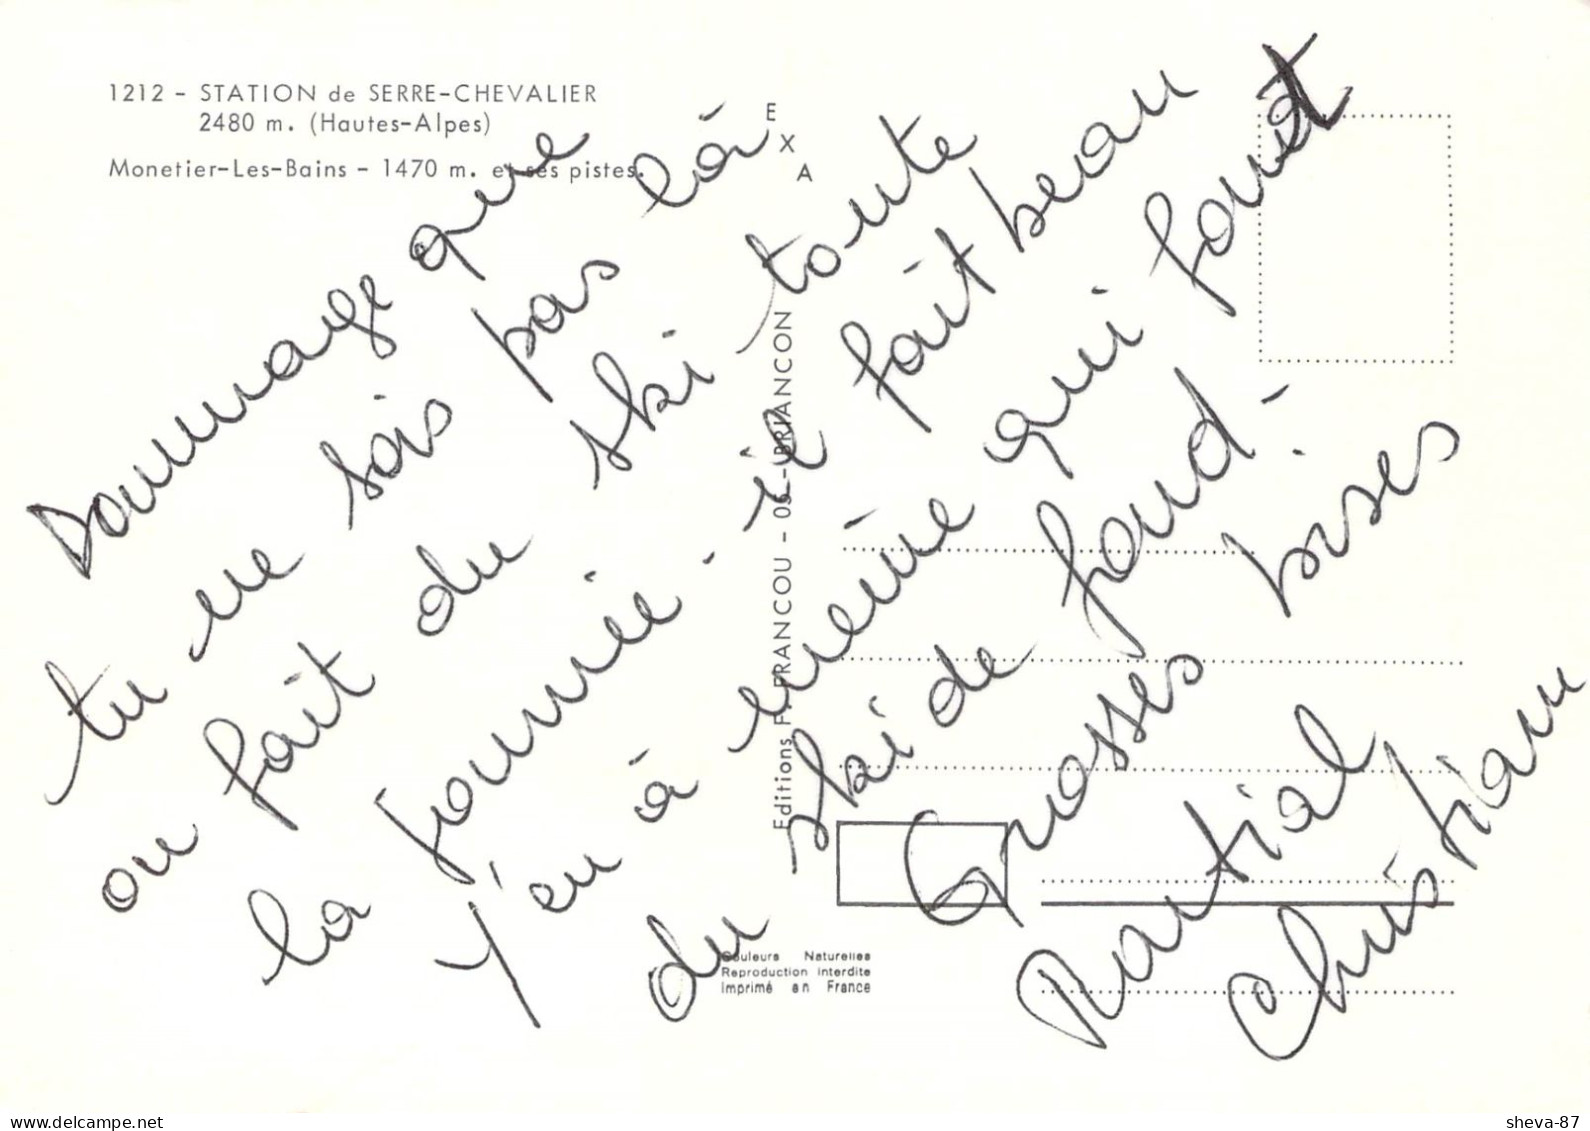 1212 - STATION de SERRE-CHEVALIER
2480 m. (Hautes-Alpes)
Monetier-Les-Bains - 1470 m. et ses pistes.
EXA
Editions F. FRANCOU - 05 - BRIANCON
Dommage que
tu ne sois pas là
on fait du ski toute
la journée - il fait beau
y'en à même qui font
du ski de fond -
Grosses bises
Martial
Christiane
Couleurs Naturelles
Reproduction interdite
Imprimé en France
delcampe.net
sheva-87